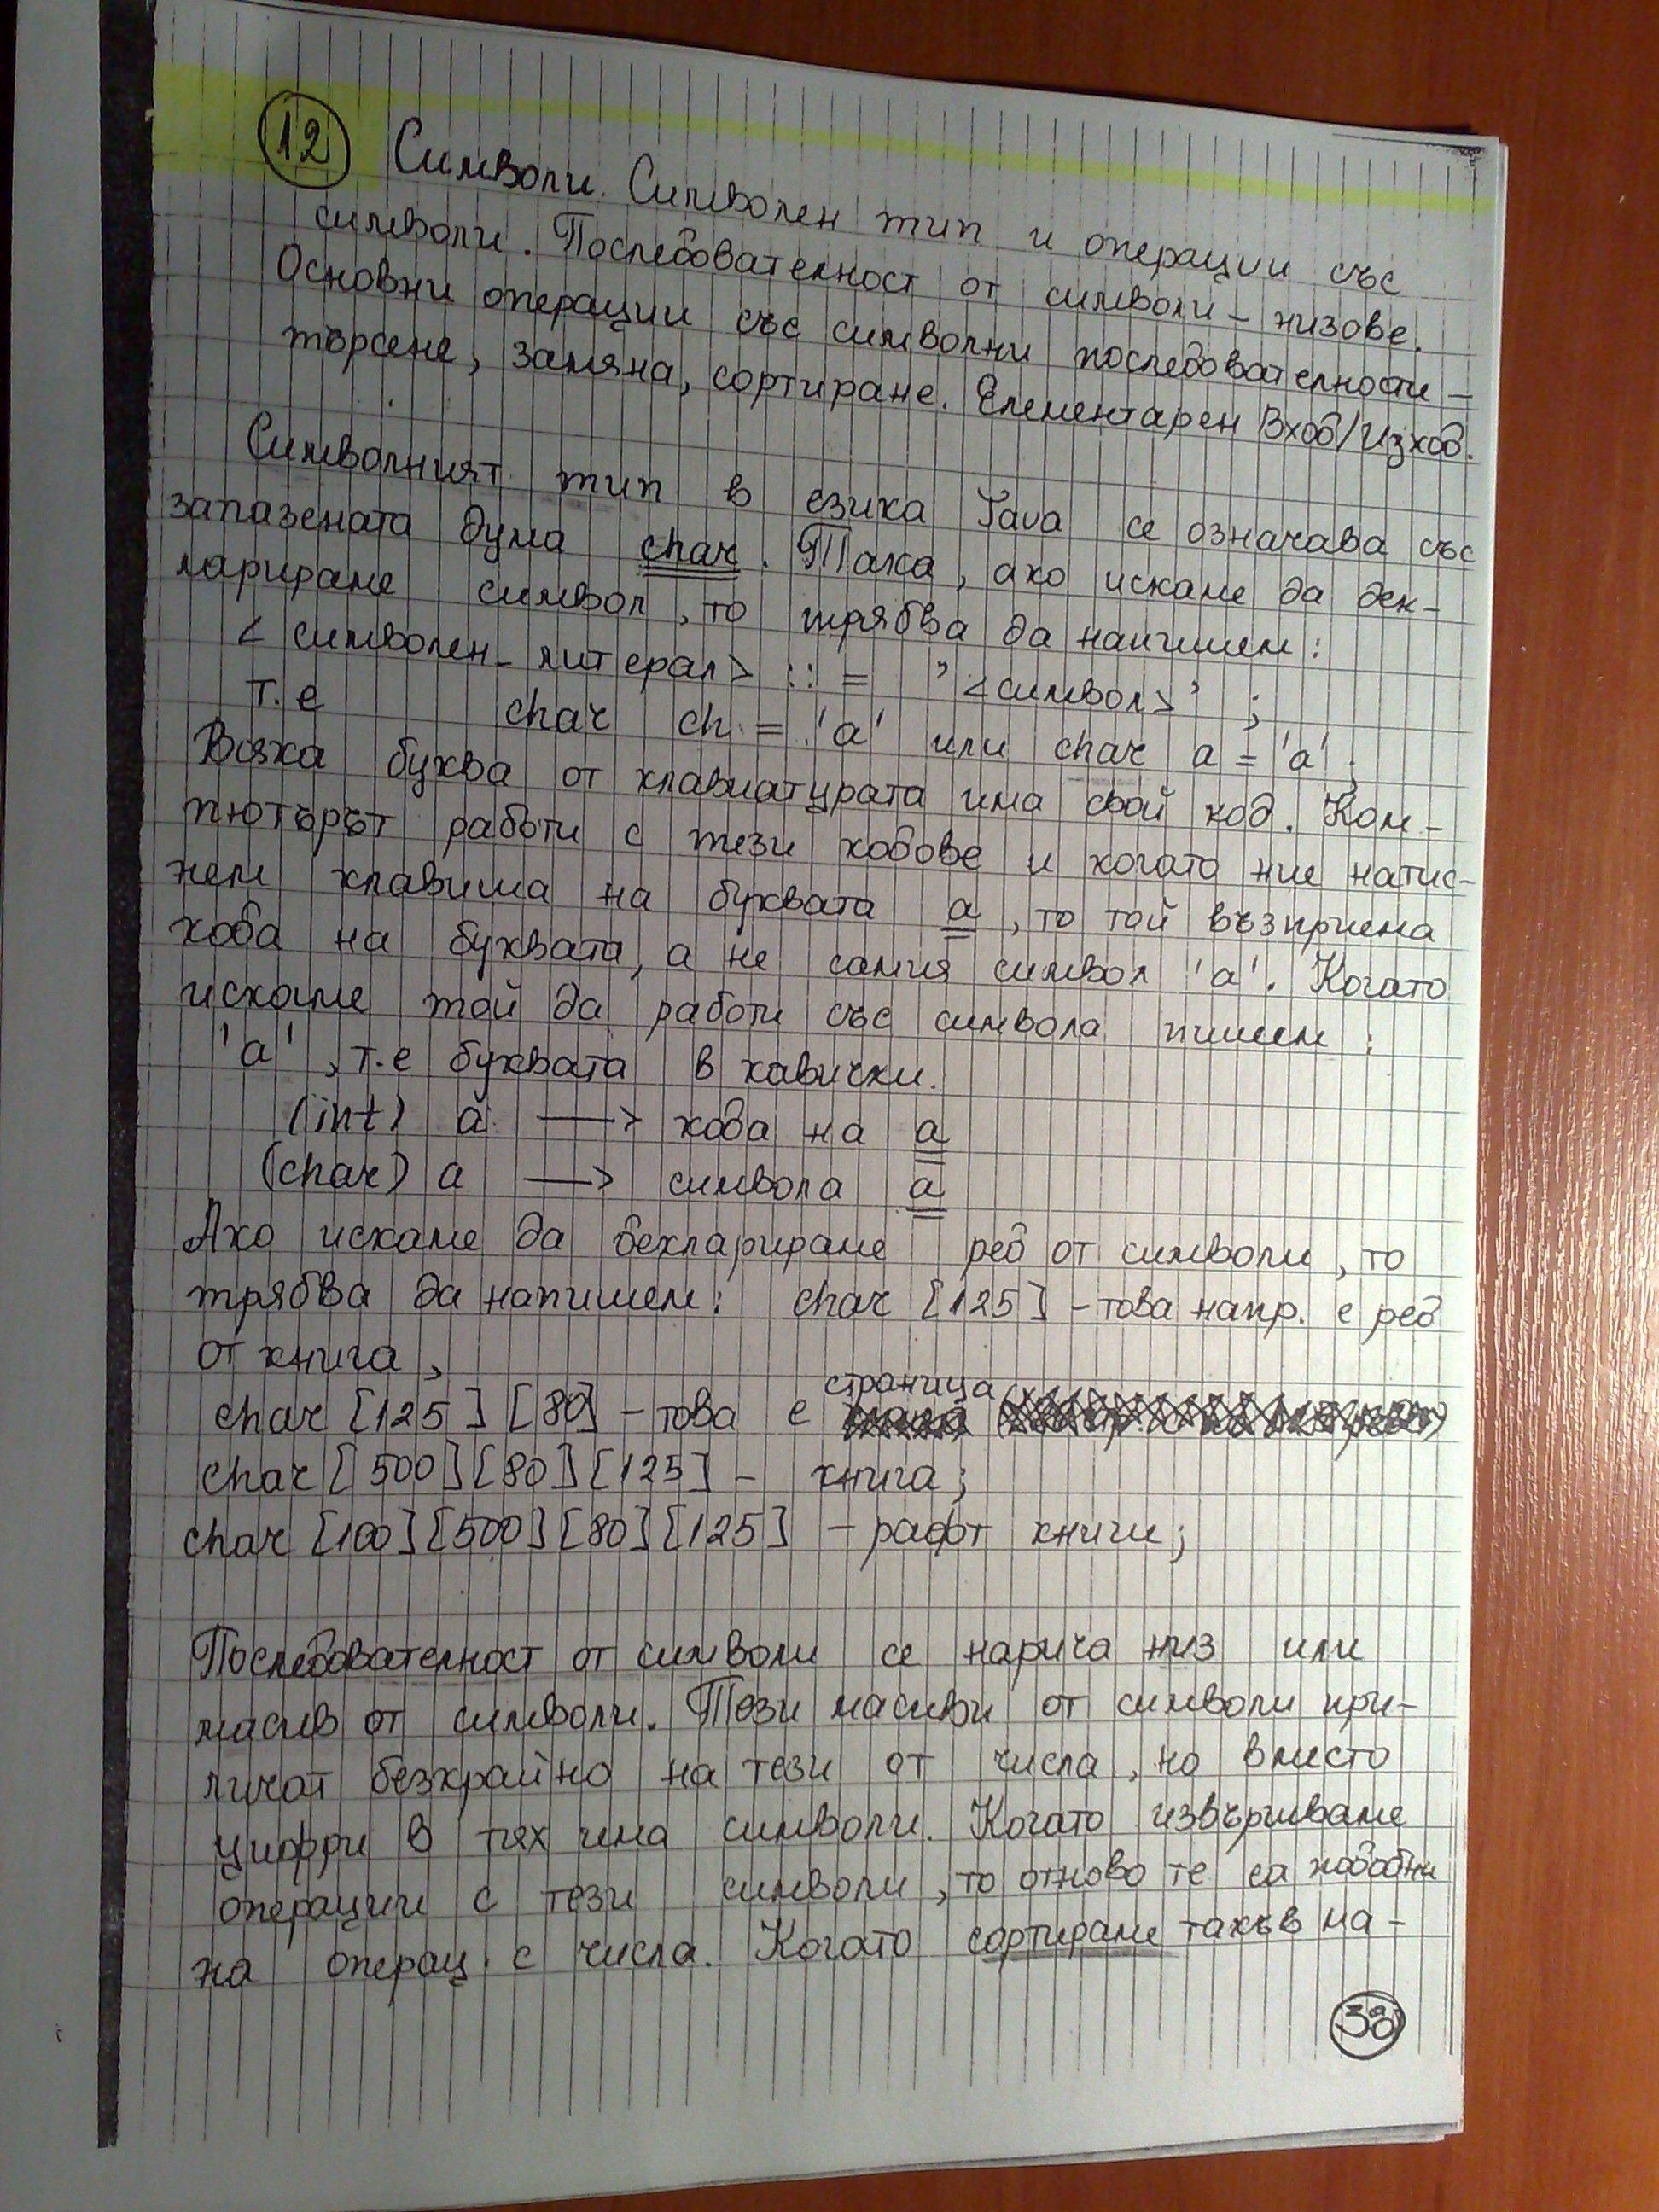 12 Символи. Символен тип и операции със
символи. Последователност от символи – низове.
Основни операции със символни последователности –
търсене, замяна, сортиране. Елементарен Вход/Изход.
Символният тип в езика Java се означава със
запазената дума char. Така, ако искаме да дек-
лариране символ, то трябва да напишем:
< символен_литерал> ::= '<символ>' ;
т.е char ch = 'a' или char a = 'a';
Всяка буква от клавиатурата има свой код. Ком-
пютърът работи с тези кодове и когато ние натис-
нем клавиша на буквата a, то той възприема
кода на буквата, а не самия символ 'a'. Когато
искаме той да работи със символа пишем:
'a', т.е буквата в кавички.
(int) a —> кода на a
(char) a —> символа a
Ако искаме да декларираме ред от символи, то
трябва да напишем: char [125] – това напр. е ред
от книга,
char [125] [80] – това е страница
char [500][80][125] – книга;
char [100][500][80][125] – рафт книги;
Последователност от символи се нарича низ или
масив от символи. Тези масиви от символи при-
личат безкрайно на тези от числа, но вместо
цифри в тях има символи. Когато извършваме
операции с тези символи, то отново те са подобни
на операц. с числа. Когато сортираме такъв ма-
38